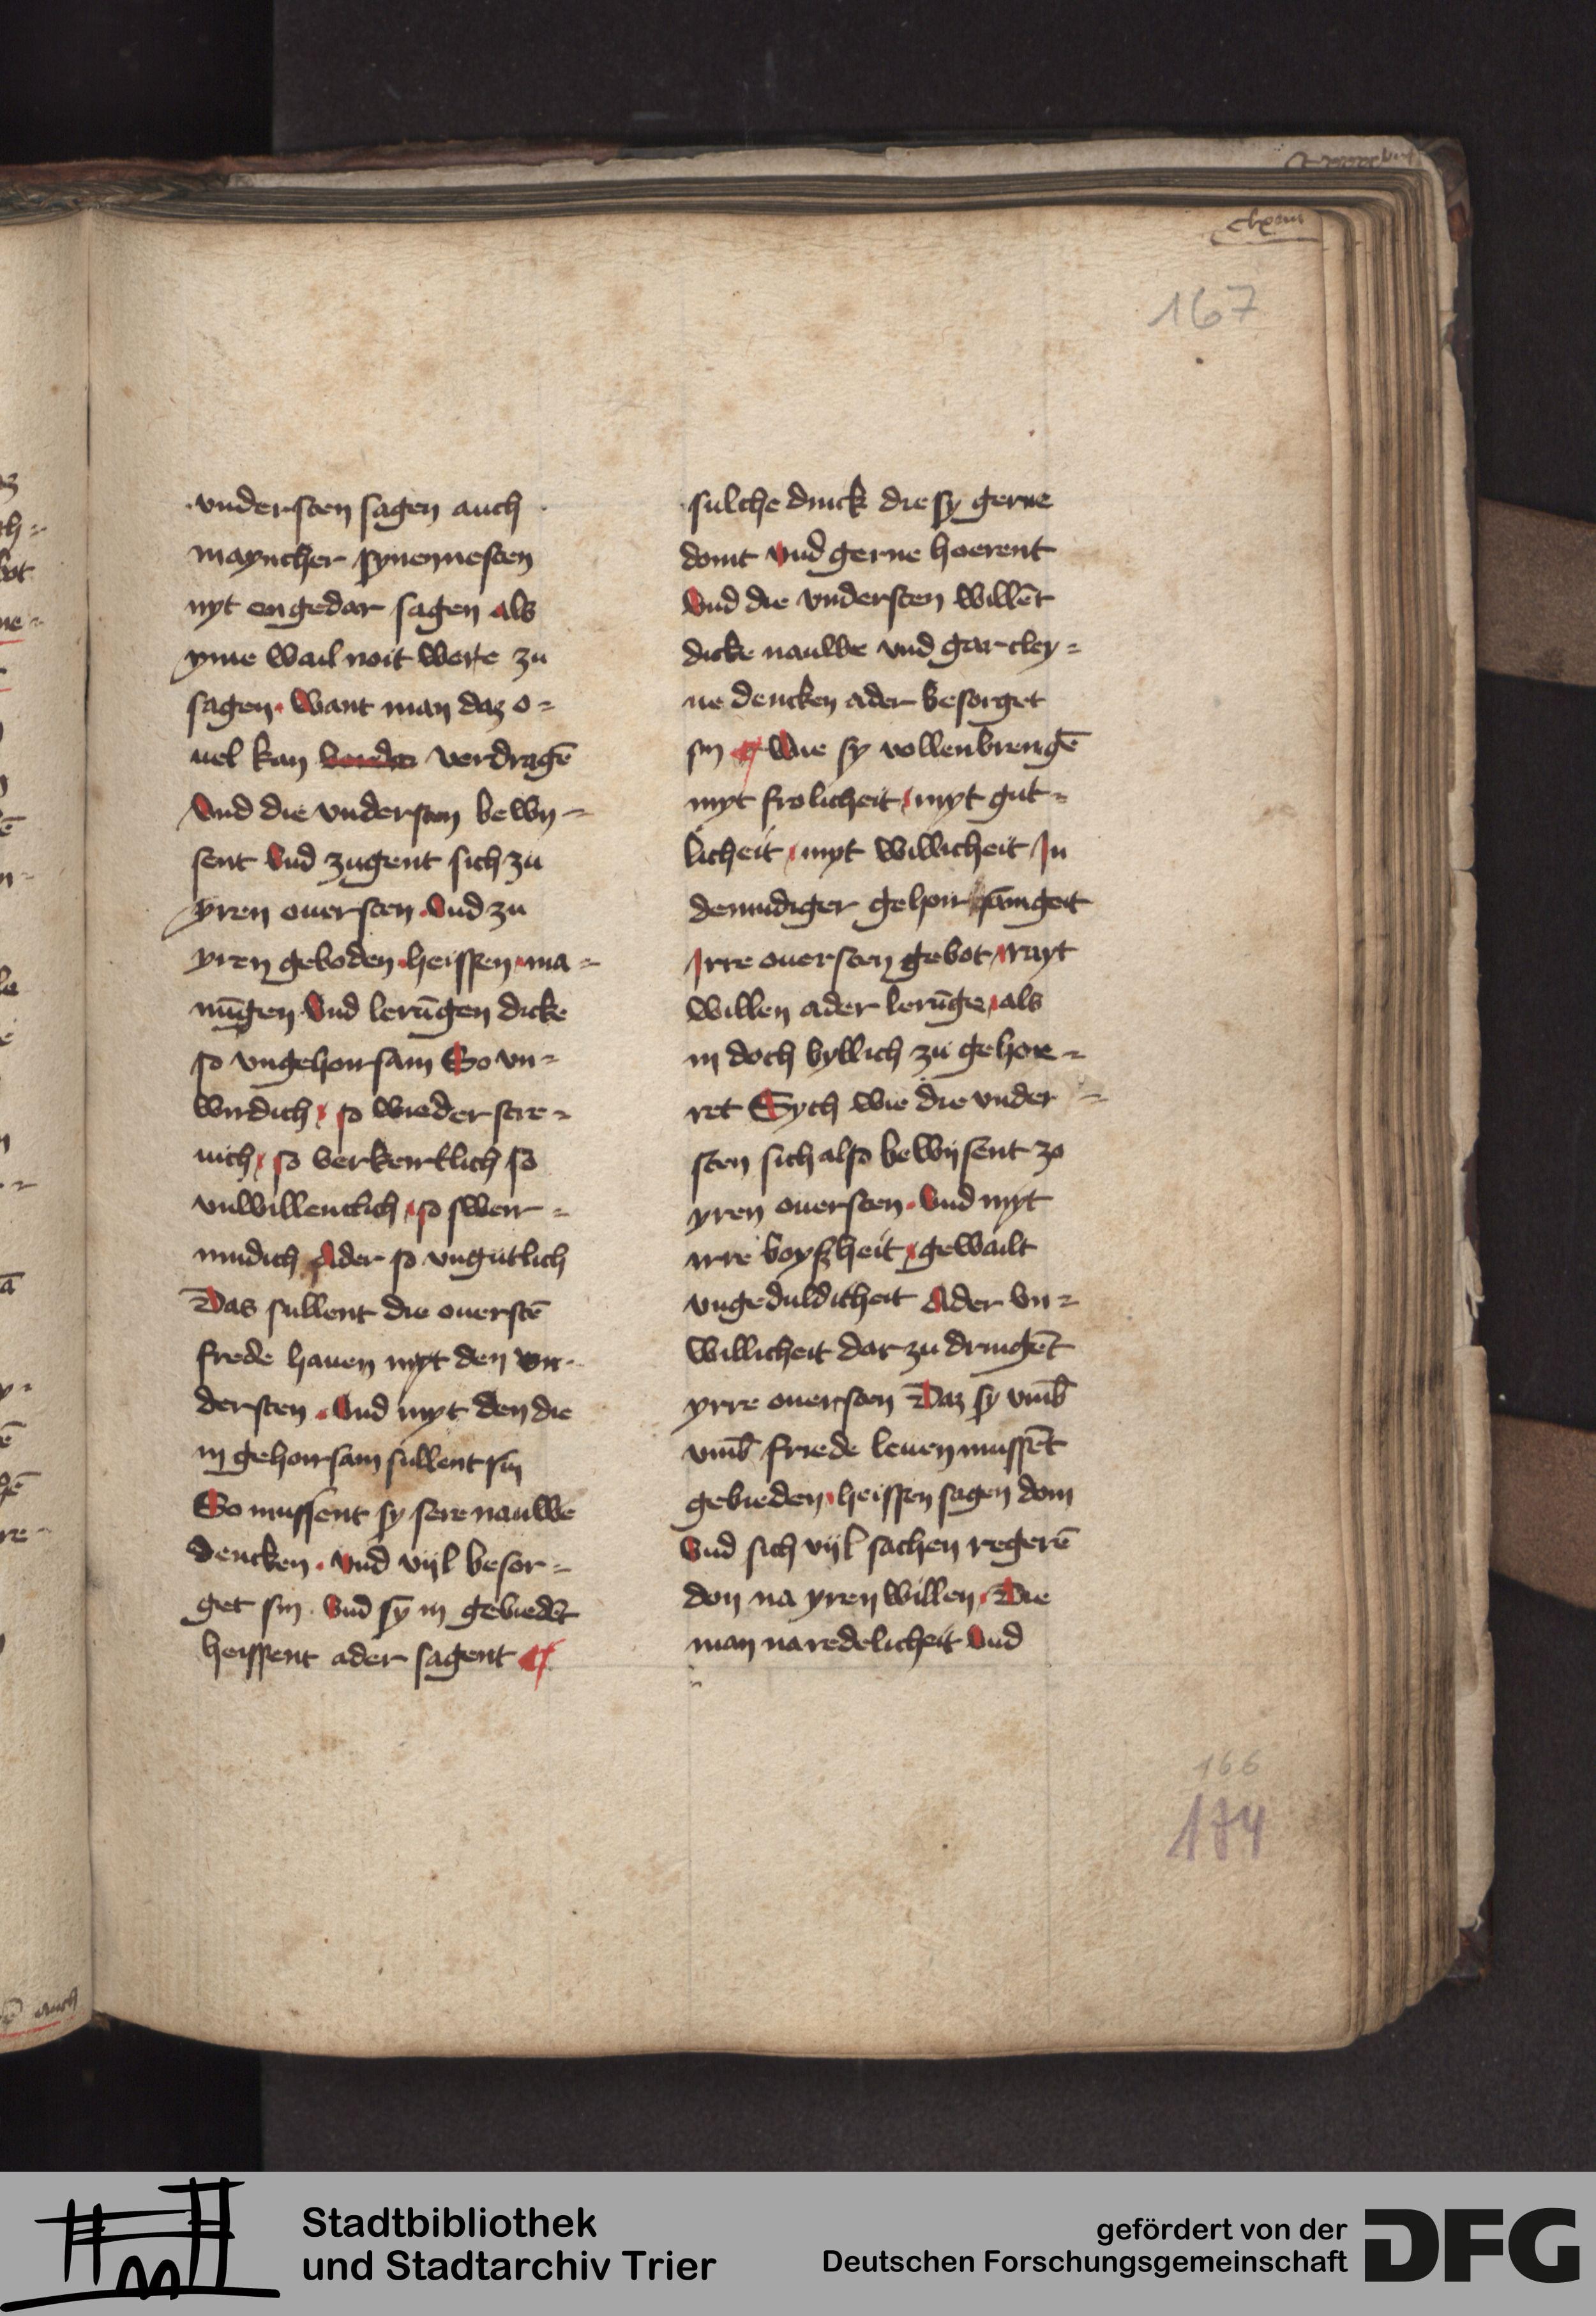 clxviii
167
vndersten sagen auch
mayncher synennesten
nyt en gedar sagen als
yme wail noit were zu
sagen. Want man daz o=
uel kan verdragē
Vnd die vndersten bewy=
sent vnd zugent sich zu
yren ouersten. Vnd zu
yren geboden. heissen. ma=
nūgen Vnd lerūgen dicke
so vngehoirsam So vn=
wirdich, so wiederstre=
uich, so verkeirtlich so
vnwillentlich, so sweir=
mudich Ader so vngutlich
Das sullent die ouerstē
frede hauen myt den vn
dersten. Vnd myt den die
in gehoirsam sullent sin
So mussent sy sere nauwe
dencken. vnd vijl besor=
get sin. Vnd sȳ in gebiedēt
heissent ader sagent
sulche dinck die sy gerne
doint vnd gerne hoerent
Vnd die vndersten willēt
dicke nauwe vnd gar cley=
ne dencken ader besorget
sin Wie sy vollenbrengē
myt frolicheit, myt gut=
licheit, myt willicheit In
demudiger gehoirsāmgeit
Irre ouersten gebot, rayt
willen ader lerūge, als
in doch byllich zu gehoe=
ret Sych wie die vnder=
sten sich also bewijsent zo
yren ouersten. Vnd myt
irre boyßheit, gewailt
vngedulditheit Ader vn=
willicheit dar zu dringēt
yrre ouersten Daz sy vmb̄
vmb̄ friede leuen mussēt
gebieden, heissen sagen doin
Vnd sich vijl sachen regerē
don na yren willen. Die
man na redelicheit Vnd
166
174
auch
Stadtbibliothek
und Stadtarchiv Trier
gefördert von der
Deutschen Forschungsgemeinschaft
DFG